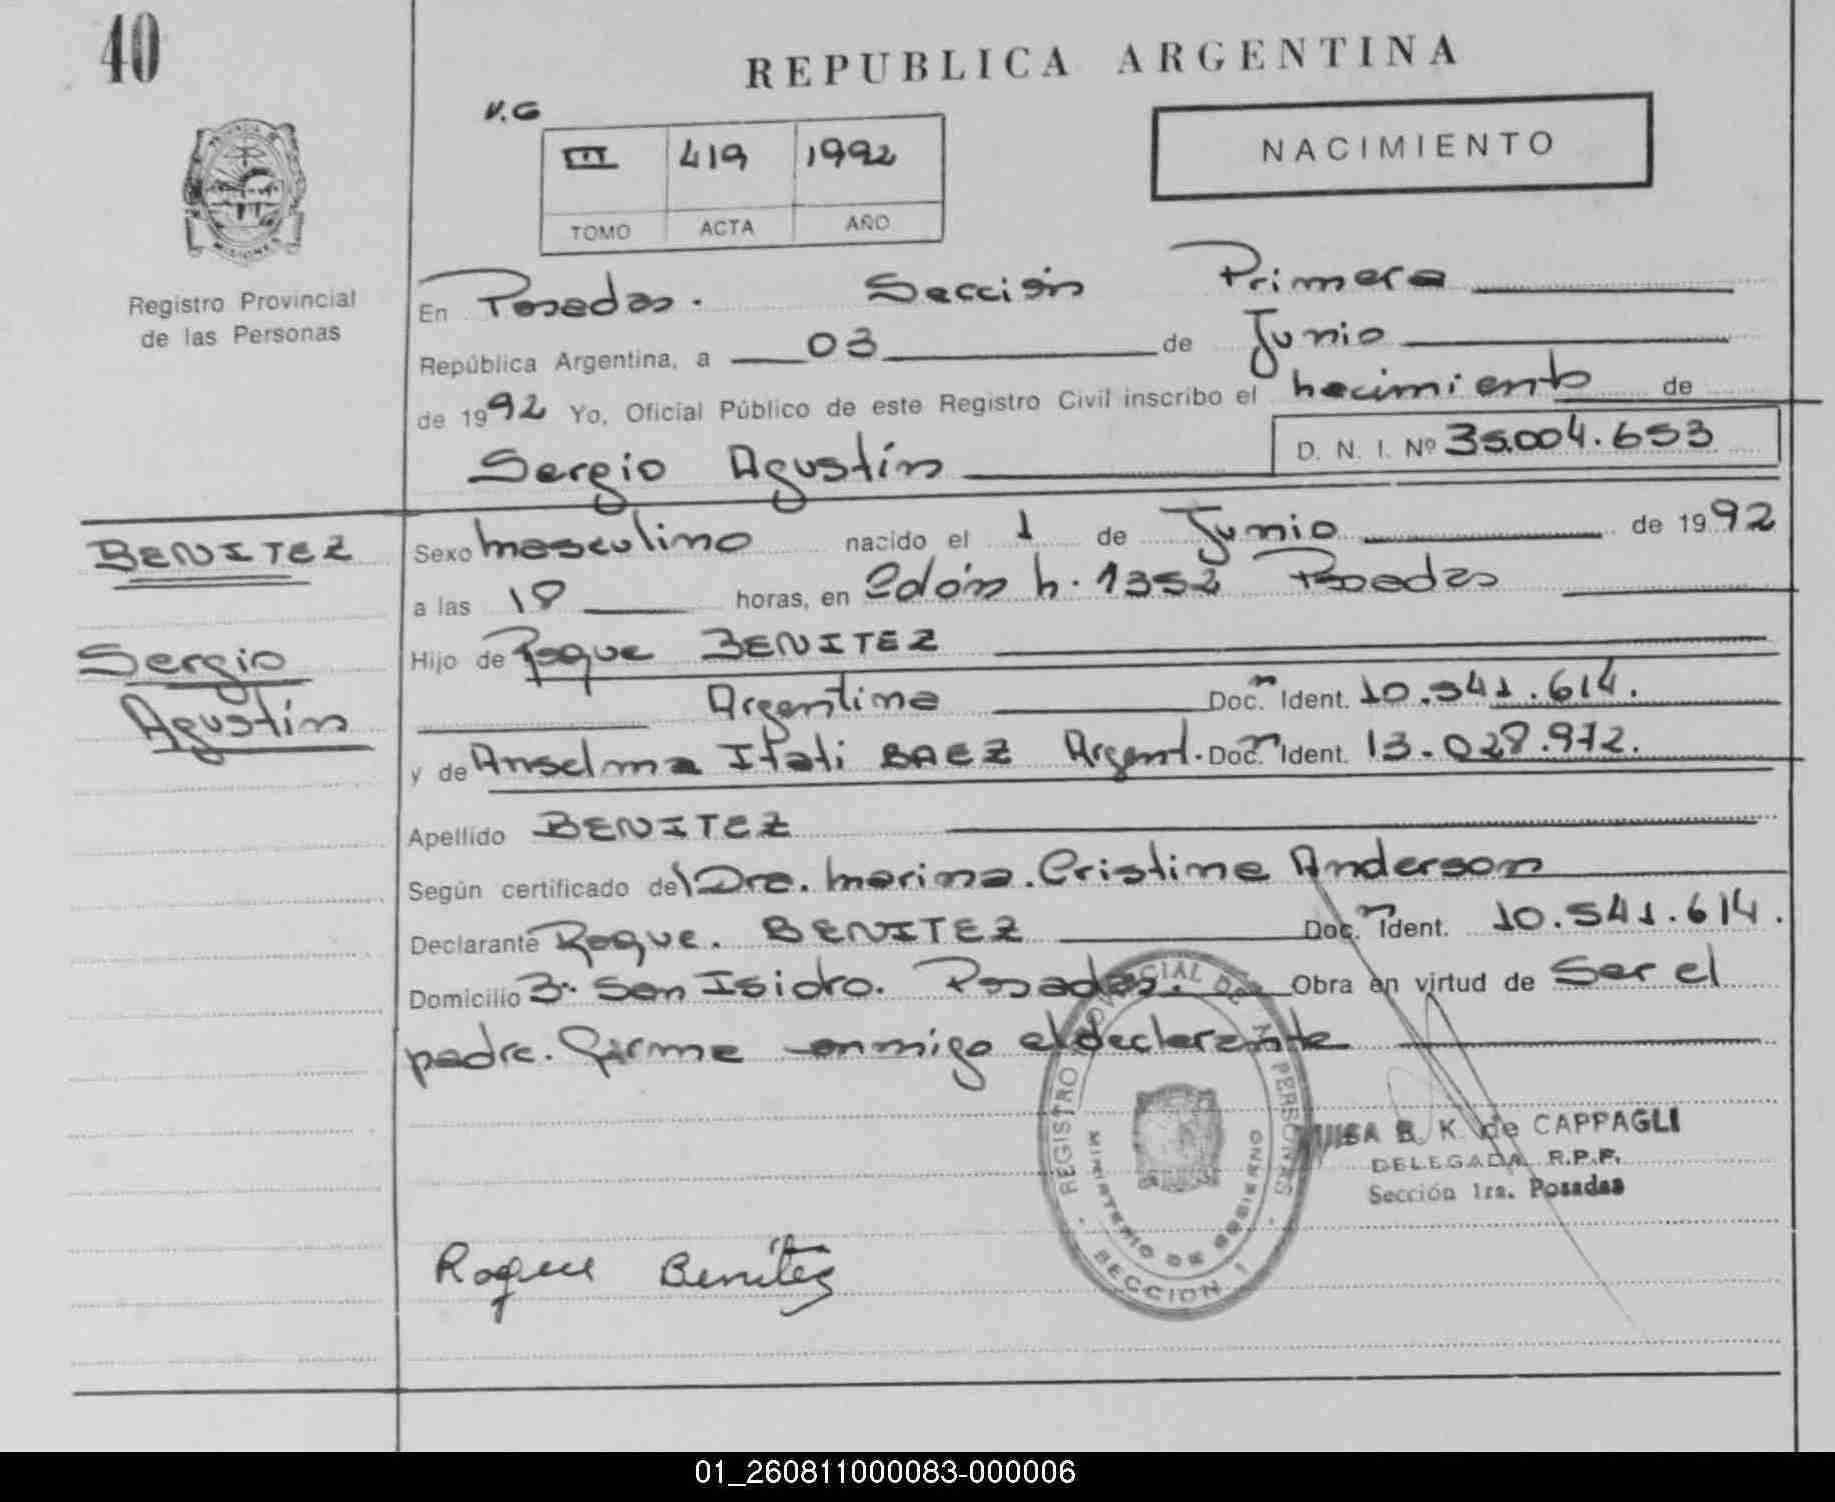 40
REPUBLICA ARGENTINA
V.G
III 419 1992
TOMO ACTA AÑO
NACIMIENTO
PROVINCIA DE MISIONES
Registro Provincial
de las Personas
En Posadas. Sección Primera
República Argentina, a 03 de Junio
de 1992 Yo, Oficial Público de este Registro Civil inscribo el nacimiento de
Sergio Agustín D. N. I. Nº 35.004.653
BENITEZ
Sergio
Agustín
Sexo masculino nacido el 1 de Junio de 1992
a las 18 horas, en Edón h. 1352 Posadas
Hijo de Roque BENITEZ
Argentina Doc. Ident. 10.541.614.
y de Anselma Itati BAEZ Argent. Doc. Ident. 13.028.972.
Apellido BENITEZ
Según certificado del Dra. Marina. Cristina Anderson
Declarante Roque. BENITEZ Doc. Ident. 10.541.614.
Domicilio Bº San Isidro. Posadas. Obra en virtud de Ser el
padre. Firma conmigo el declarante
REGISTRO PROVINCIAL DE PERSONAS
MINISTERIO DE GOBIERNO
SECCION 1
LUISA B. K. de CAPPAGLI
DELEGADA R.P.P.
Sección 1ra. Posadas
Roque Benítez
01_260811000083-000006